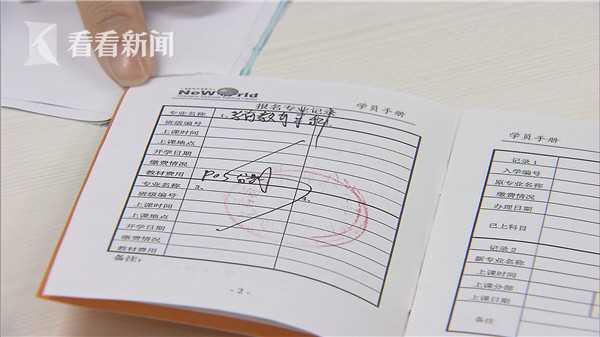 看看新闻
NeWorld
报名专业记录
学员手册
专业名称 1、
班级编号
上课时间
上课地点
开学日期
缴费情况
教材费用
专业名称 2、
班级编号
上课时间
上课地点
开学日期
缴费情况
教材费用
备注：
- 2 -
学员手册
记录1
入学编号
原专业名称
缴费情况
办理日期
已上科目
记录2
新专业名称
上课时间
上课分部
上课日期
备注